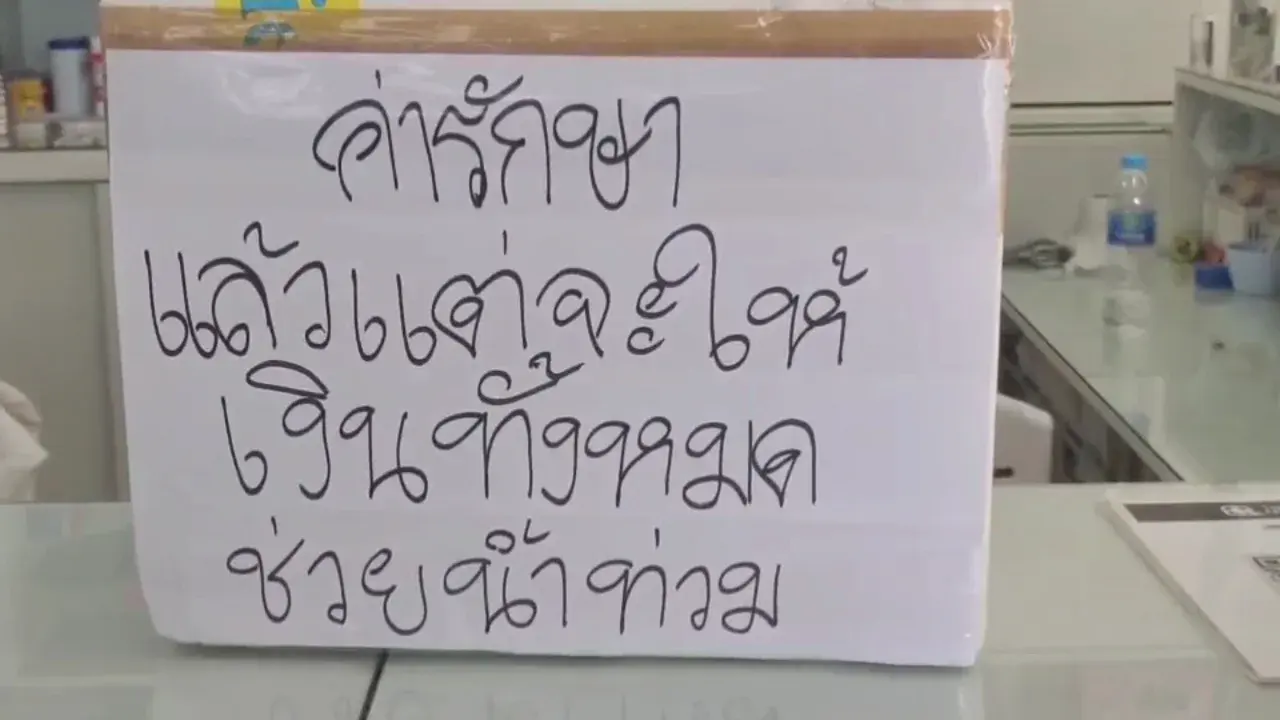 ค่ารักษา
แล้วแต่จะให้
เงินทั้งหมด
ช่วยน้ำท่วม